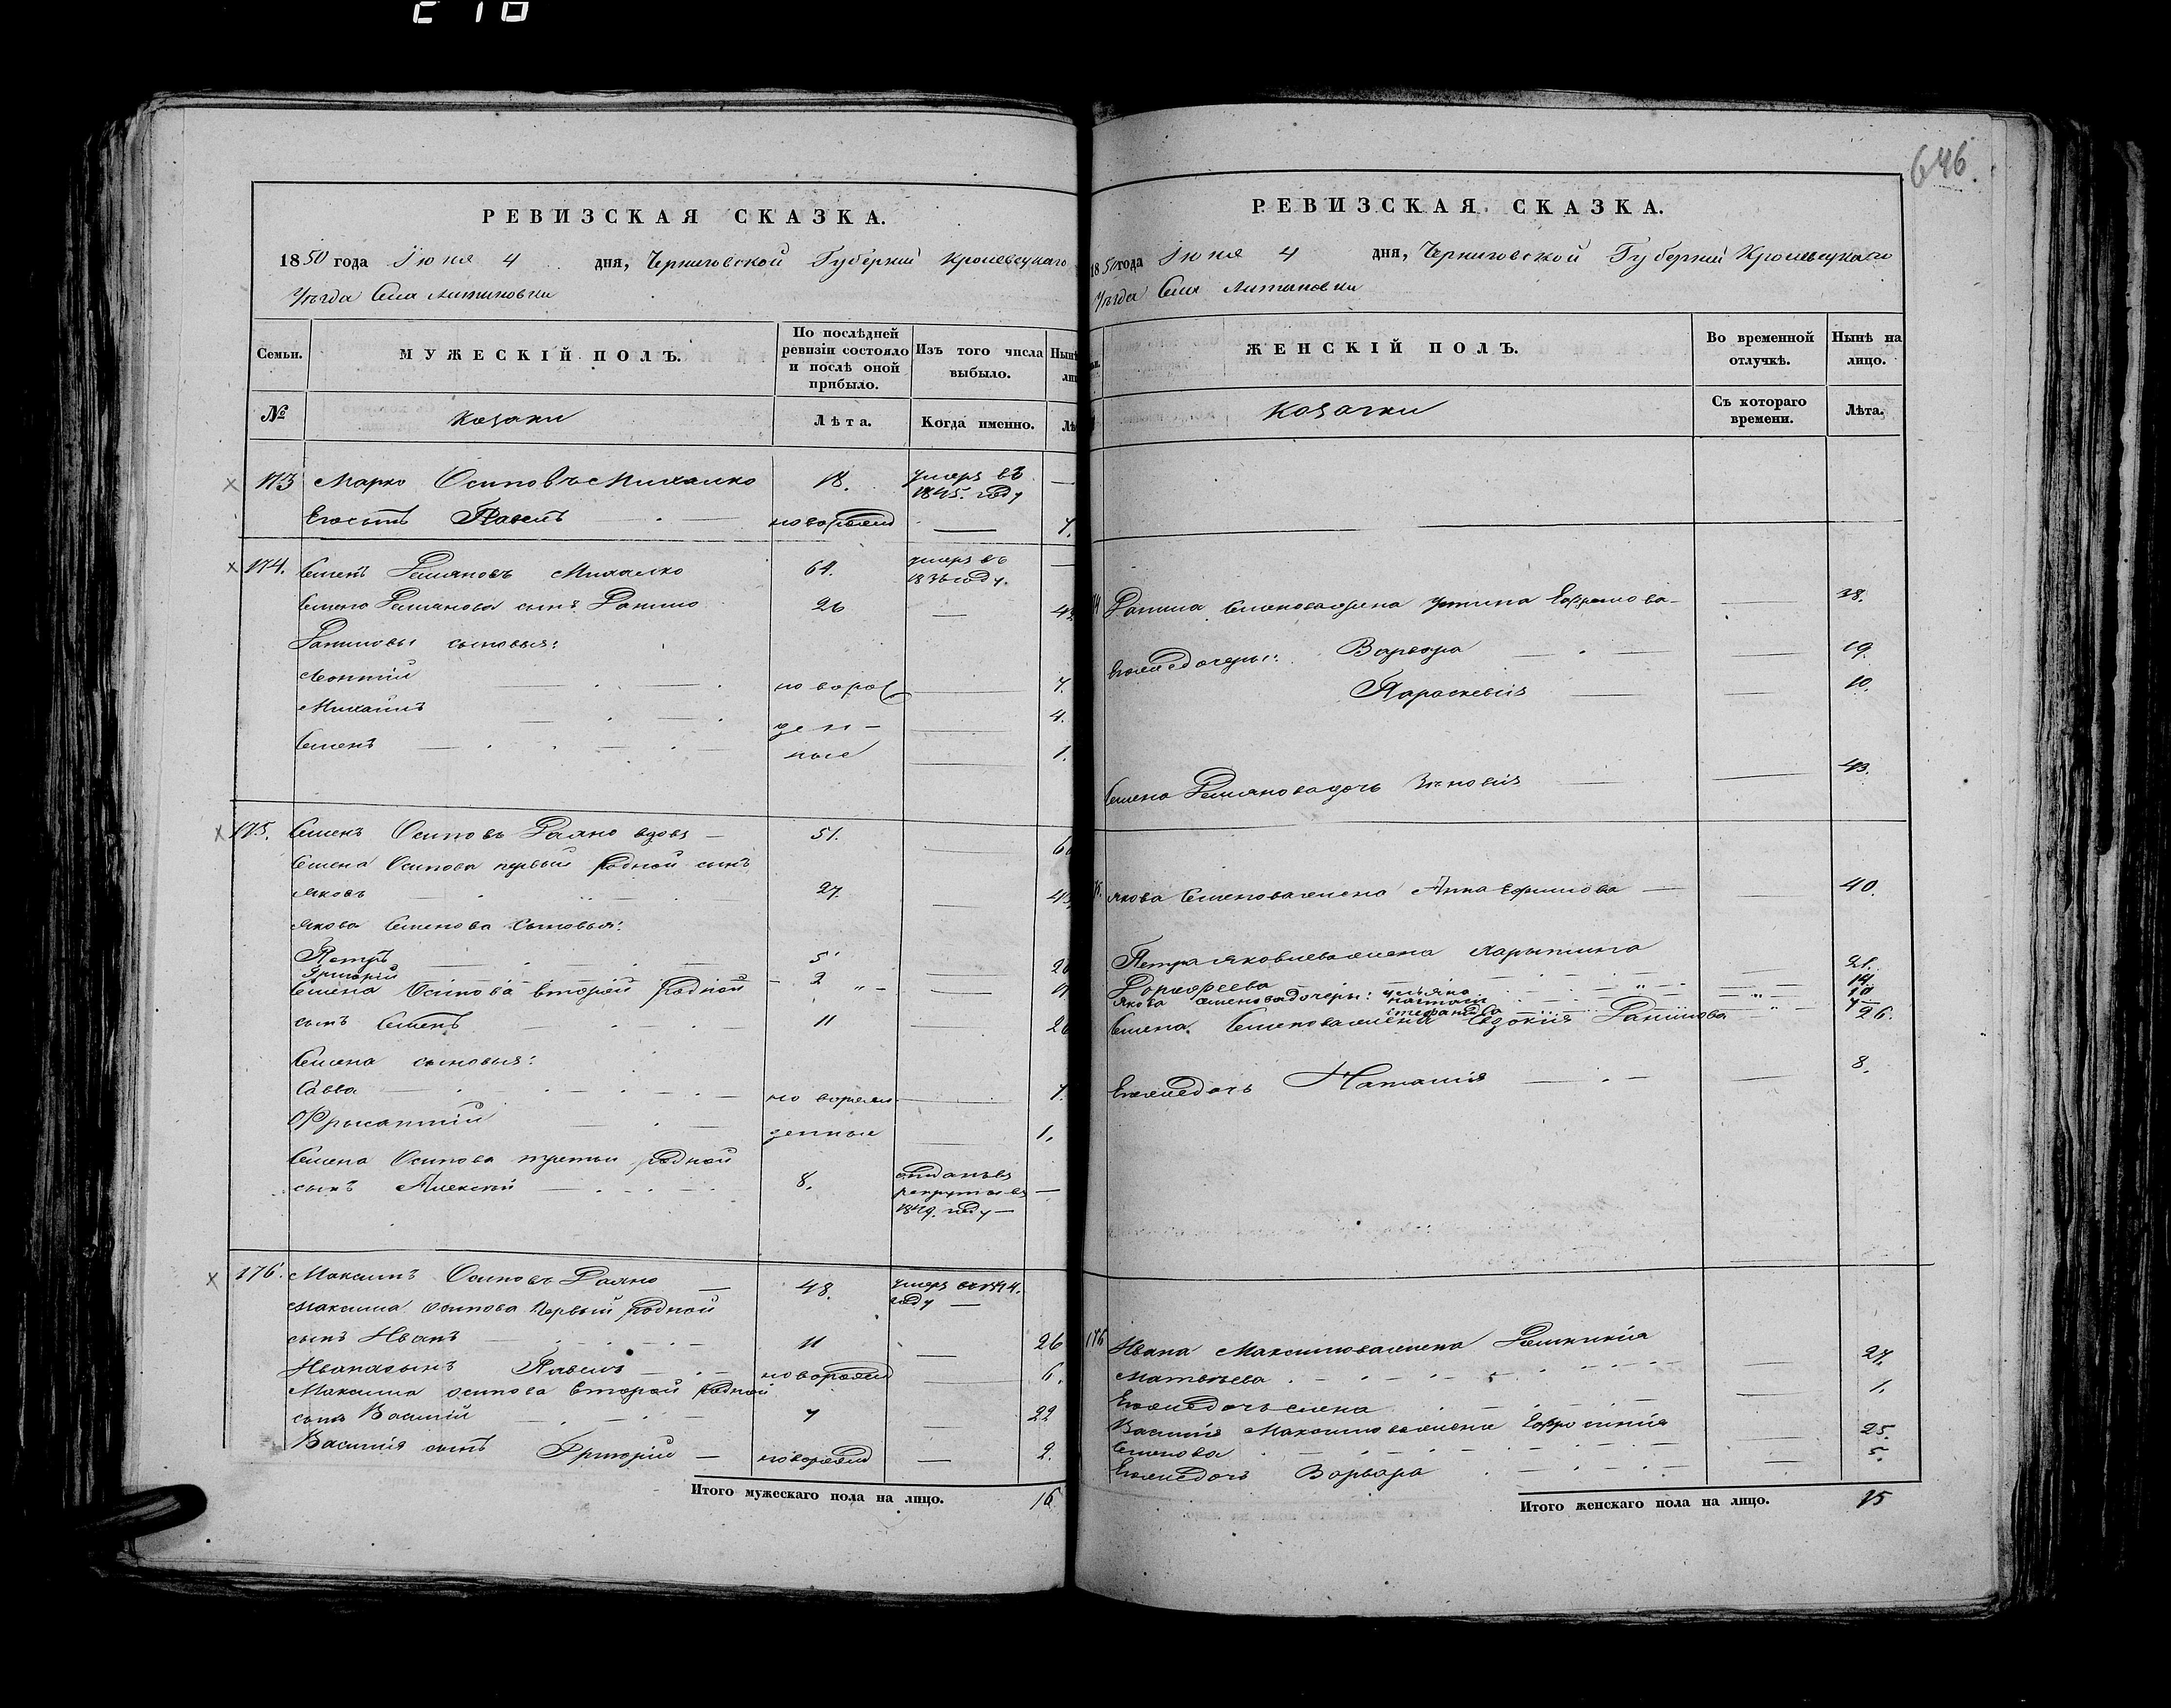 210
646.
РЕВИЗСКАЯ СКАЗКА.
1850 года Іюня 4 дня, Черниговской Губерніи Кролевецкаго
Уѣзда Села Литвиновки
Семьи.
МУЖЕСКІЙ ПОЛЪ.
По послѣдней ревизіи состояло и послѣ оной прибыло.
Изъ того числа выбыло.
№
Козаки
Лѣта.
Когда именно.
173 Марко Осиповъ Михалко 18. умеръ въ 1845. году —
Его сынъ Павелъ новорожд — 7.
174. Семенъ Демяновъ Михалко 64. умеръ въ 1836 году. —
Семена Демянова сынъ Данило 26 —
Даниловы сыновья:
Леонтій новорож — 7.
Михаилъ ден — 4.
Семенъ ные — 1.
175. Семенъ Осиповъ вдовъ — 51.
Семена Осипова первый родной сынъ
Яковъ 27.
Якова Семенова сыновья:
Петръ 5
Григорій 2
Семена Осипова второй родной
сынъ Семенъ 11
Семена сыновья:
Савва новорож 7.
Фрисантій денные 1.
Семена Осипова третій родной
сынъ Алексѣй 8. отданъ въ рекруты въ 1849. году —
176. Максимъ Осиповъ 48. умеръ 1844. году —
Максима Осипова первый родной
сынъ Иванъ 11 — 26
Ивана сынъ Павелъ новорожд — 6.
Максима Осипова второй родной
сынъ Василій 7 — 22
Василія сынъ Григорій — новорожд — 2.
Итого мужескаго пола на лицо. 16
РЕВИЗСКАЯ СКАЗКА.
1850 года Іюня 4 дня, Черниговской Губерніи Кролевецкаго
Уѣзда Села Литвиновки
ЖЕНСКІЙ ПОЛЪ.
Во временной отлучкѣ.
Нынѣ на лицо.
Козачки
Съ котораго времени.
Лѣта.
Данила Семенова жена Устина Ефремова — 38.
Его же дочери: Варвара — 19.
Параскевія — 10.
Семена Демянова дочь Зѣновія — 43.
Якова Семенова жена Анна Ефимова — 40.
Петра Яковлева жена Харытина
Дорофеева — 21.
Якова Семенова дочери: Ульяна 14
Настасія 10
Стефанида 7
Семена Семенова жена Евдокія Данилова 26.
Его же дочь Наталія — 8.
176 Ивана Максимова жена Домникія
Матвѣева 27.
Его же дочь Елена 1.
Василія Максимова жена Ефросинія
Семенова 25.
Его же дочь Варвара 5.
Итого женскаго пола на лицо. 15